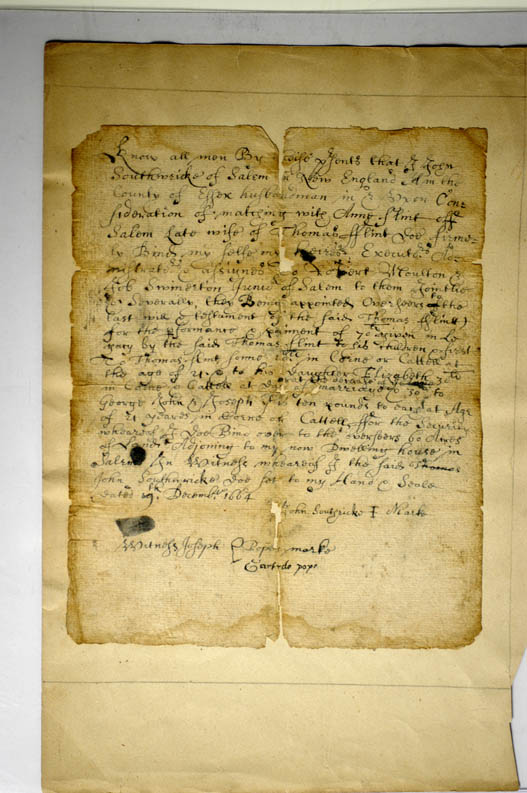 Know all men By these psents that I John
Southwricke of Salem in New England in the
County of Essex husbandman in & Upon Con-
sideration of matching with Anne flint of
Salem Late wife of Thomas fflint Doe firme-
ly Bind my selfe my heires Executrs Ad-
ministrators & assignes to Robert Moulton &
Job Swinerton Junir of Salem to them Jointlie
or Severally, they Being appointed Overseers to the
Last will & testament of the said Thomas fflint
for the pformance & paiment of given in Le
gacy by the said Thomas fflint to his Children first
To Thomas flint sonne in Corne or Cattell at
the age of to his Daughter Elizabeth 30
in Corne or Cattell at Day of marriage & to
George John & Joseph ten pounds to each at Age
of 21 years in Corne or Cattell ffor the Security
wheareof I Doe Bind over to the overseers 60 Acres
of Land Adjoining to my now Dwelling house in
Salem In Witness wheareof I the said
John Southwricke Doe set to my Hand & Seale
dated 19th Decembr 1664
John Southricke I Marke
Witness Joseph Popes marke
Gartrde pope